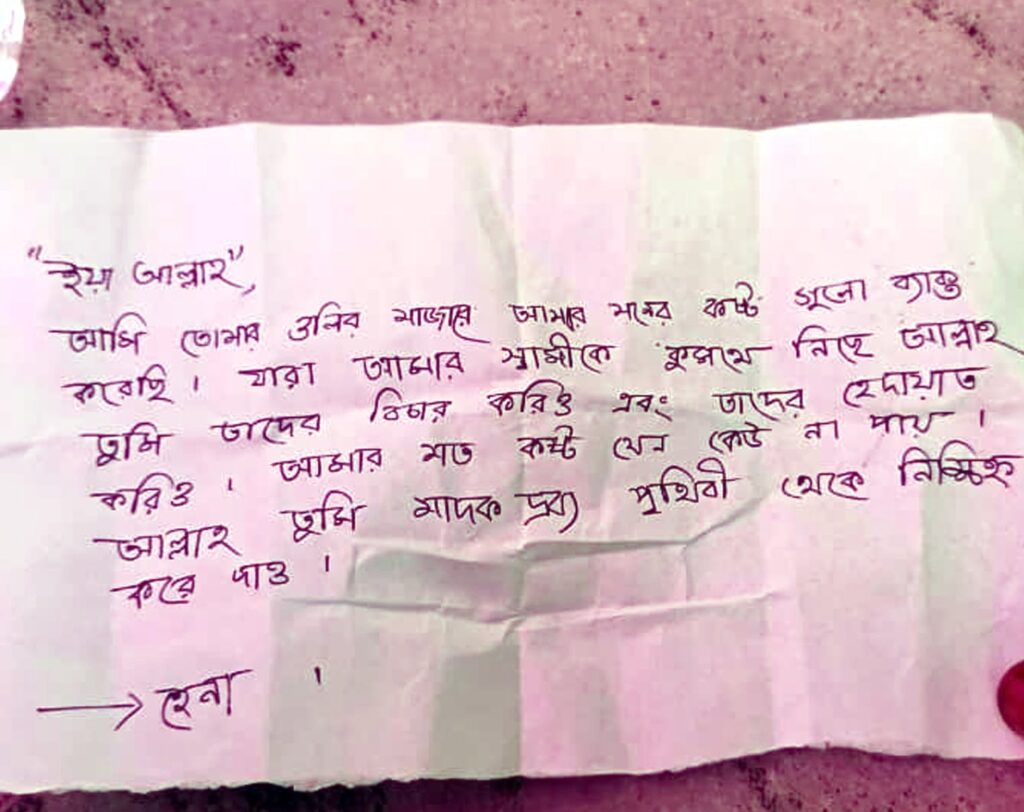 "ইয়া আল্লাহ",
আমি তোমার ওলির মাজারে আমার মনের কষ্ট গুলো ব্যক্ত
করেছি । যারা আমার স্বামীকে কুপথে নিছে আল্লাহ
তুমি তাদের বিচার করিও এবং তাদের হেদায়াত
করিও । আমার মত কষ্ট যেন কেউ না পায় ।
আল্লাহ তুমি মাদক দ্রব্য পৃথিবী থেকে নিশ্চিহ্ন
করে দাও ।
→ হেনা ।